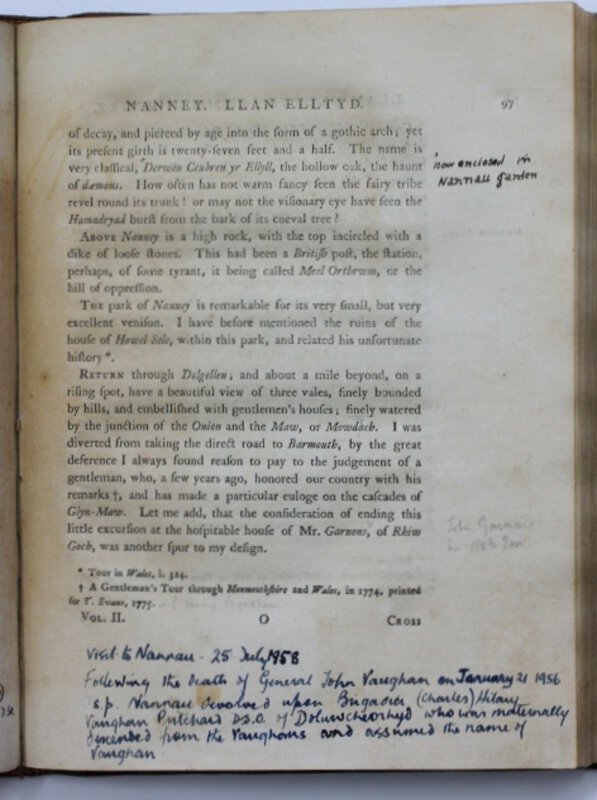 NANNEY. LLAN ELLTYD. 97
of decay, and pierced by age into the form of a gothic arch; yet
its preſent girth is twenty-ſeven feet and a half. The name is
very claſſical, Derwen Ceubren yr Ellyll, the hollow oak, the haunt
of dæmons. How often has not warm fancy ſeen the fairy tribe
revel round its trunk! or may not the viſionary eye have ſeen the
Hamadryad burſt from the bark of its coeval tree?
now enclosed in
Nannau Garden
ABOVE Nanney is a high rock, with the top incircled with a
dike of looſe ſtones. This had been a Britiſh poſt, the ſtation,
perhaps, of ſome tyrant, it being called Moel Orthrwm, or the
hill of oppreſſion.
THE park of Nanney is remarkable for its very ſmall, but very
excellent veniſon. I have before mentioned the ruins of the
houſe of Howel Sele, within this park, and related his unfortunate
hiſtory *.
RETURN through Dolgelleu; and about a mile beyond, on a
riſing ſpot, have a beautiful view of three vales, finely bounded
by hills, and embelliſhed with gentlemen's houſes; finely watered
by the junction of the Onion and the Maw, or Mowdach. I was
diverted from taking the direct road to Barmouth, by the great
deference I always found reaſon to pay to the judgement of a
gentleman, who, a few years ago, honored our country with his
remarks †, and has made a particular euloge on the caſcades of
Glyn-Maw. Let me add, that the conſideration of ending this
little excurſion at the hoſpitable houſe of Mr. Garnons, of Rhiw
Goch, was another ſpur to my deſign.
John Garnons
in 1763
* Tour in Wales, i. 324.
† A Gentleman's Tour through Monmouthſhire and Wales, in 1774, printed
for T. Evans, 1775.
VOL. II. O CROSS
Visit to Nannau - 25 July 1958
Following the death of General John Vaughan on January 21 1956
s.p. Nannau devolved upon Brigadier (Charles) Hilary
Vaughan Pritchard D.S.O. of who was maternally
descended from the Vaughans and assumed the name of
Vaughan